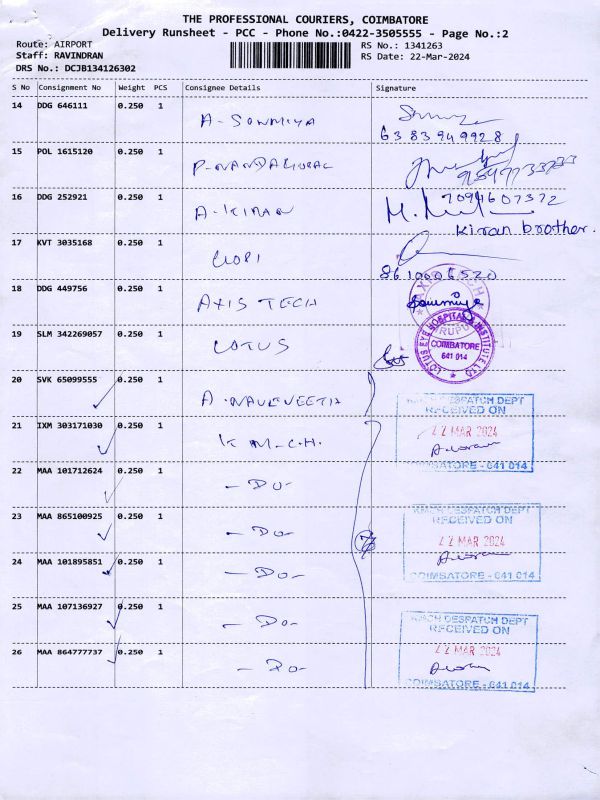 THE PROFESSIONAL COURIERS, COIMBATORE
Delivery Runsheet - PCC - Phone No.:0422-3505555 - Page No.:2
Route: AIRPORT
Staff: RAVINDRAN
DRS No.: DCJB134126302
RS No.: 1341263
RS Date: 22-Mar-2024
S No Consignment No Weight PCS Consignee Details Signature
14 DDG 646111 0.250 1 A-SOWMIYA
6383949928
15 POL 1615120 0.250 1
16 DDG 252921 0.250 1 A-KIRAN 7094607372
Kiran brother.
17 KVT 3035168 0.250 1
8610006520
18 DDG 449756 0.250 1 AXIS TECH
19 SLM 342269057 0.250 1 LOTUS
LOTUS EYE HOSPITAL & INSTITUTE LTD
COIMBATORE
641 014
20 SVK 65099555 0.250 1
21 IXM 303171030 0.250 1 K M.C.H.
KMCH DESPATCH DEPT
RECEIVED ON
22 MAR 2024
COIMBATORE - 641 014
22 MAA 101712624 0.250 1 - Do -
23 MAA 865100925 0.250 1 - Do -
KMCH DESPATCH DEPT
RECEIVED ON
22 MAR 2024
COIMBATORE - 641 014
24 MAA 101895851 0.250 1 - Do -
25 MAA 107136927 0.250 1 - Do -
KMCH DESPATCH DEPT
RECEIVED ON
22 MAR 2024
COIMBATORE - 641 014
26 MAA 864777737 0.250 1 - Do -